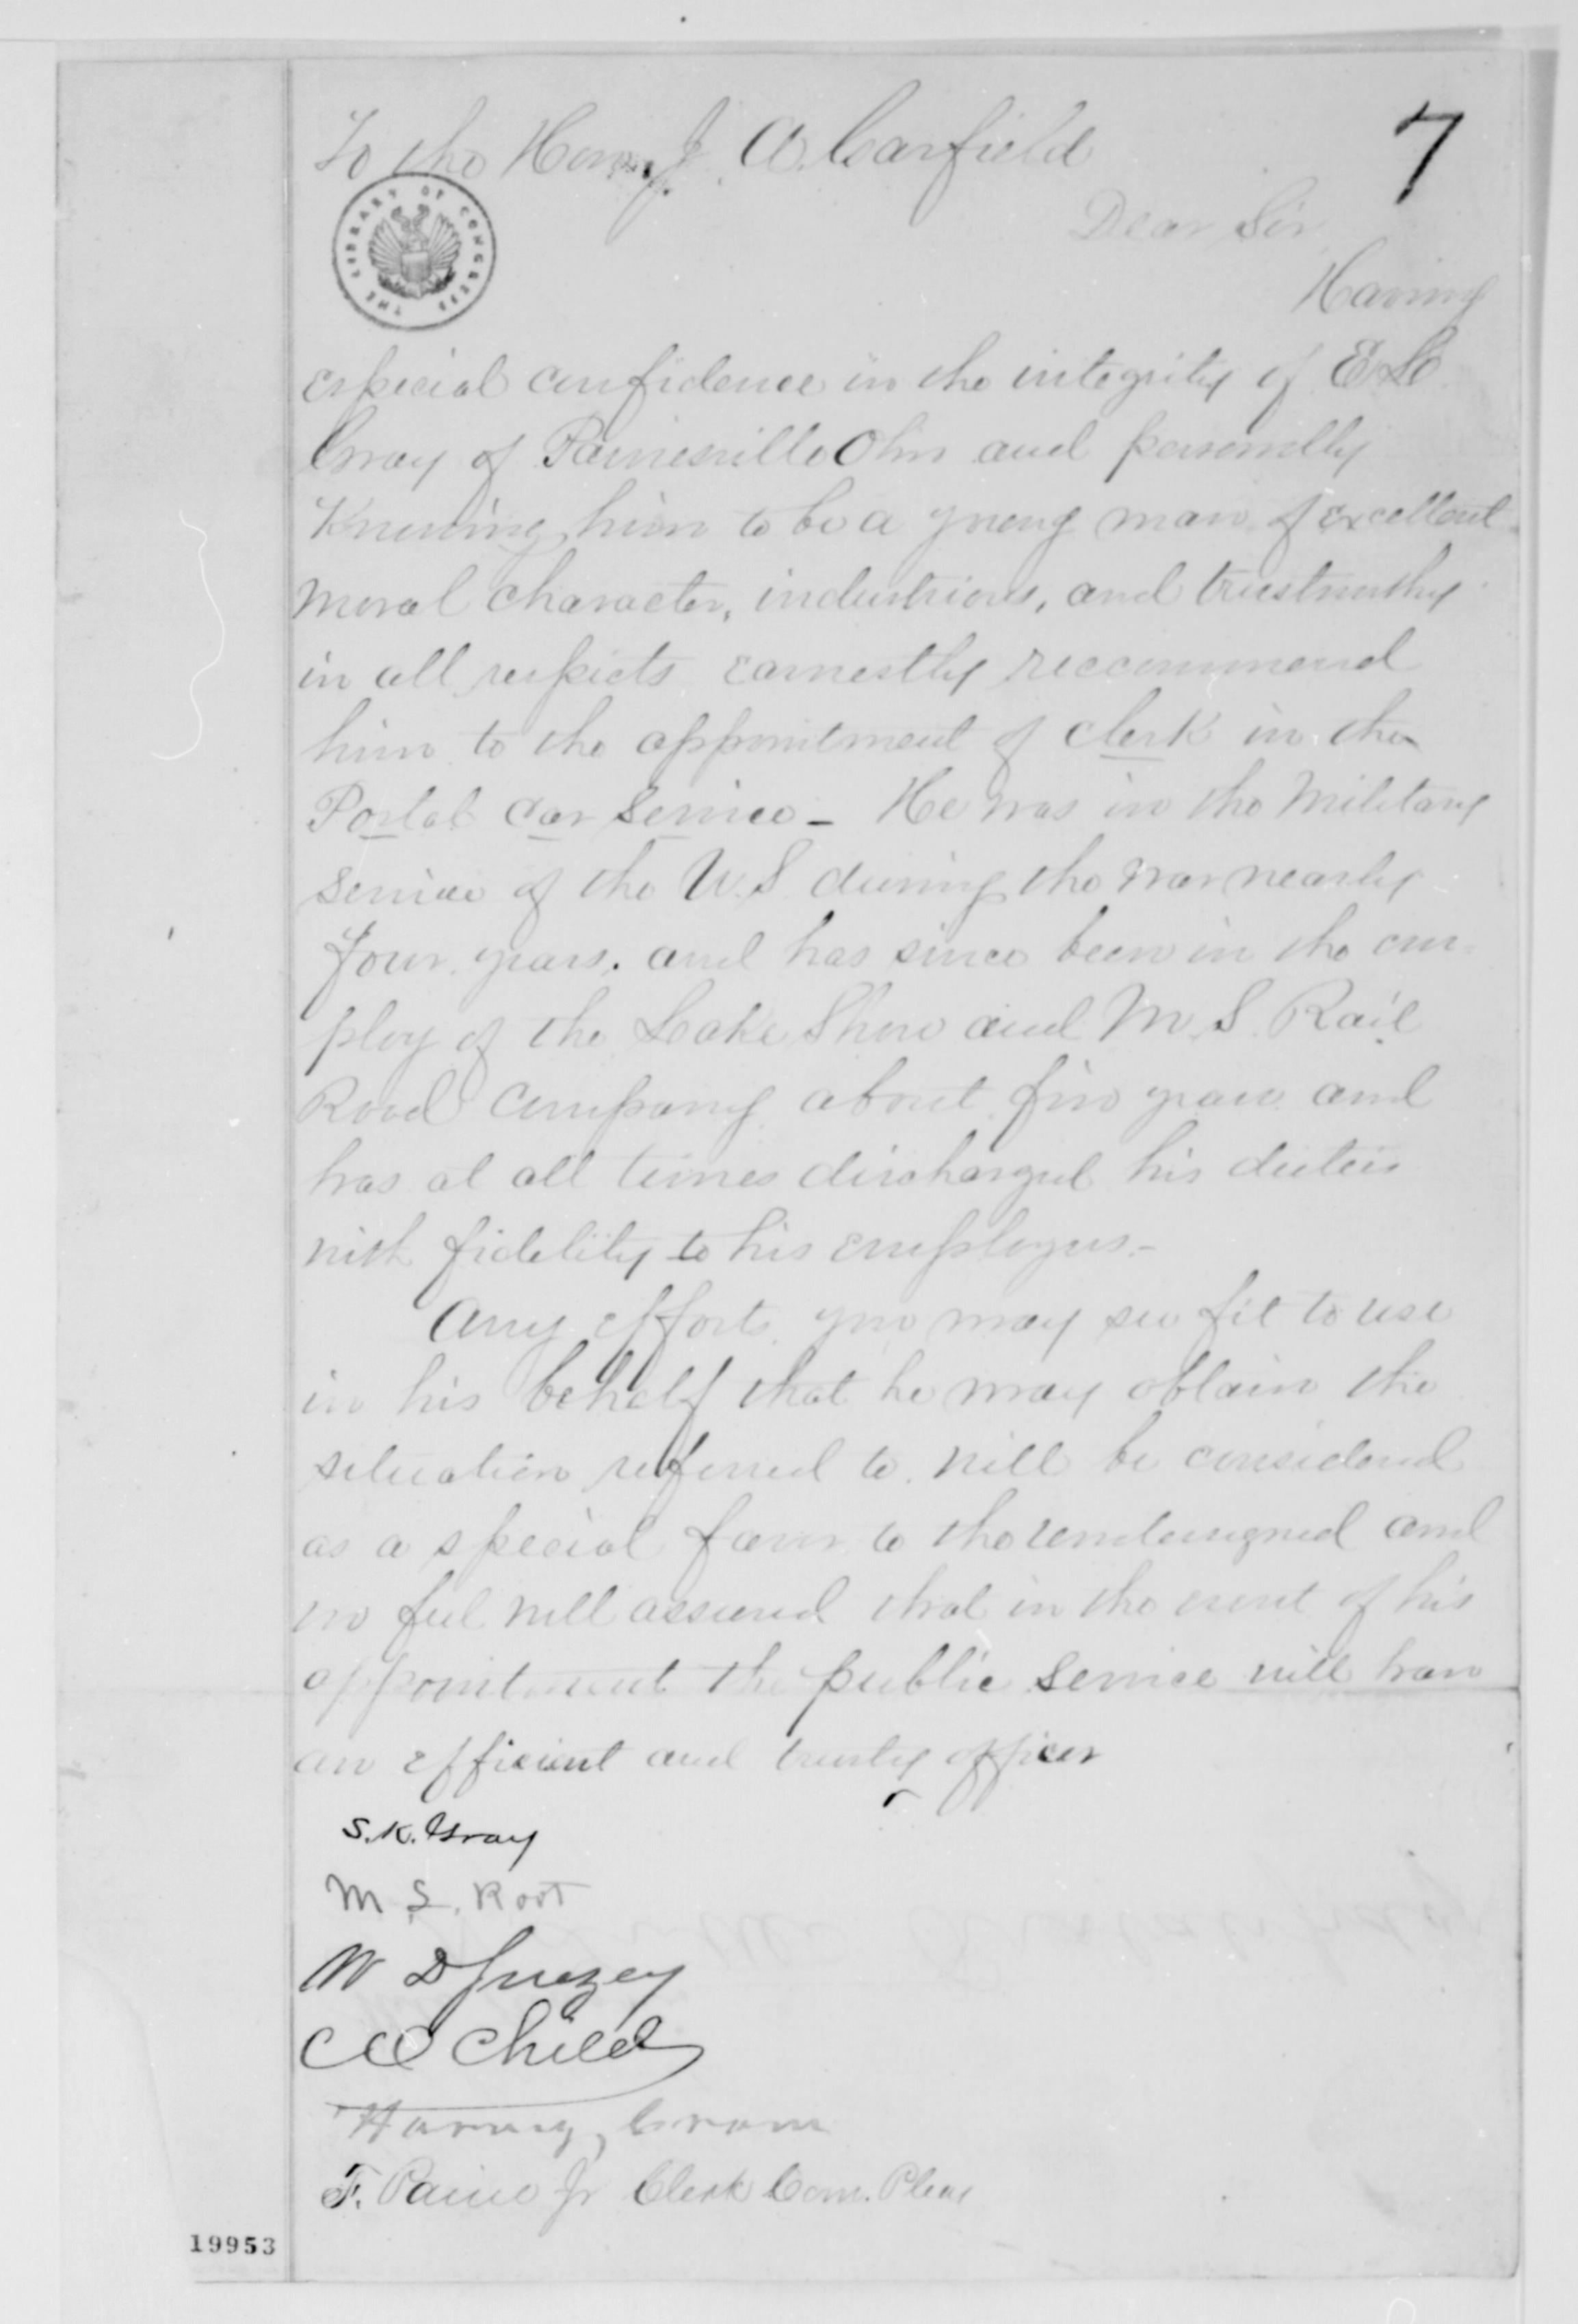 To the Hon. J. A. Garfield
7
THE LIBRARY OF CONGRESS
Dear Sir
Having
especial confidence in the integrity of
Gray of Painesville Ohio and personally
Knowing him to be a young man of excellent
moral character, industrious, and trustworthy
in all respects earnestly reccommend
him to the appointment of clerk in the
Postal Car Service - He was in the Military
service of the U.S. during the war nearly
four years. and has since been in the em-
ploy of the Lake Shore and M. S. Rail
Road Company about five years and
has at all times discharged his duties
with fidelity to his employers.-
Any efforts you may see fit to use
in his behalf that he may obtain the
situation referred to will be considered
as a special favor to the undersigned and
we feel well assured that in the event of his
appointment the public service will have
an efficient and trusty officer
S. K. Gray
M S. Root
W D
C O Child
Harvey
F. Paine Jr Clerk Com. Pleas
19953